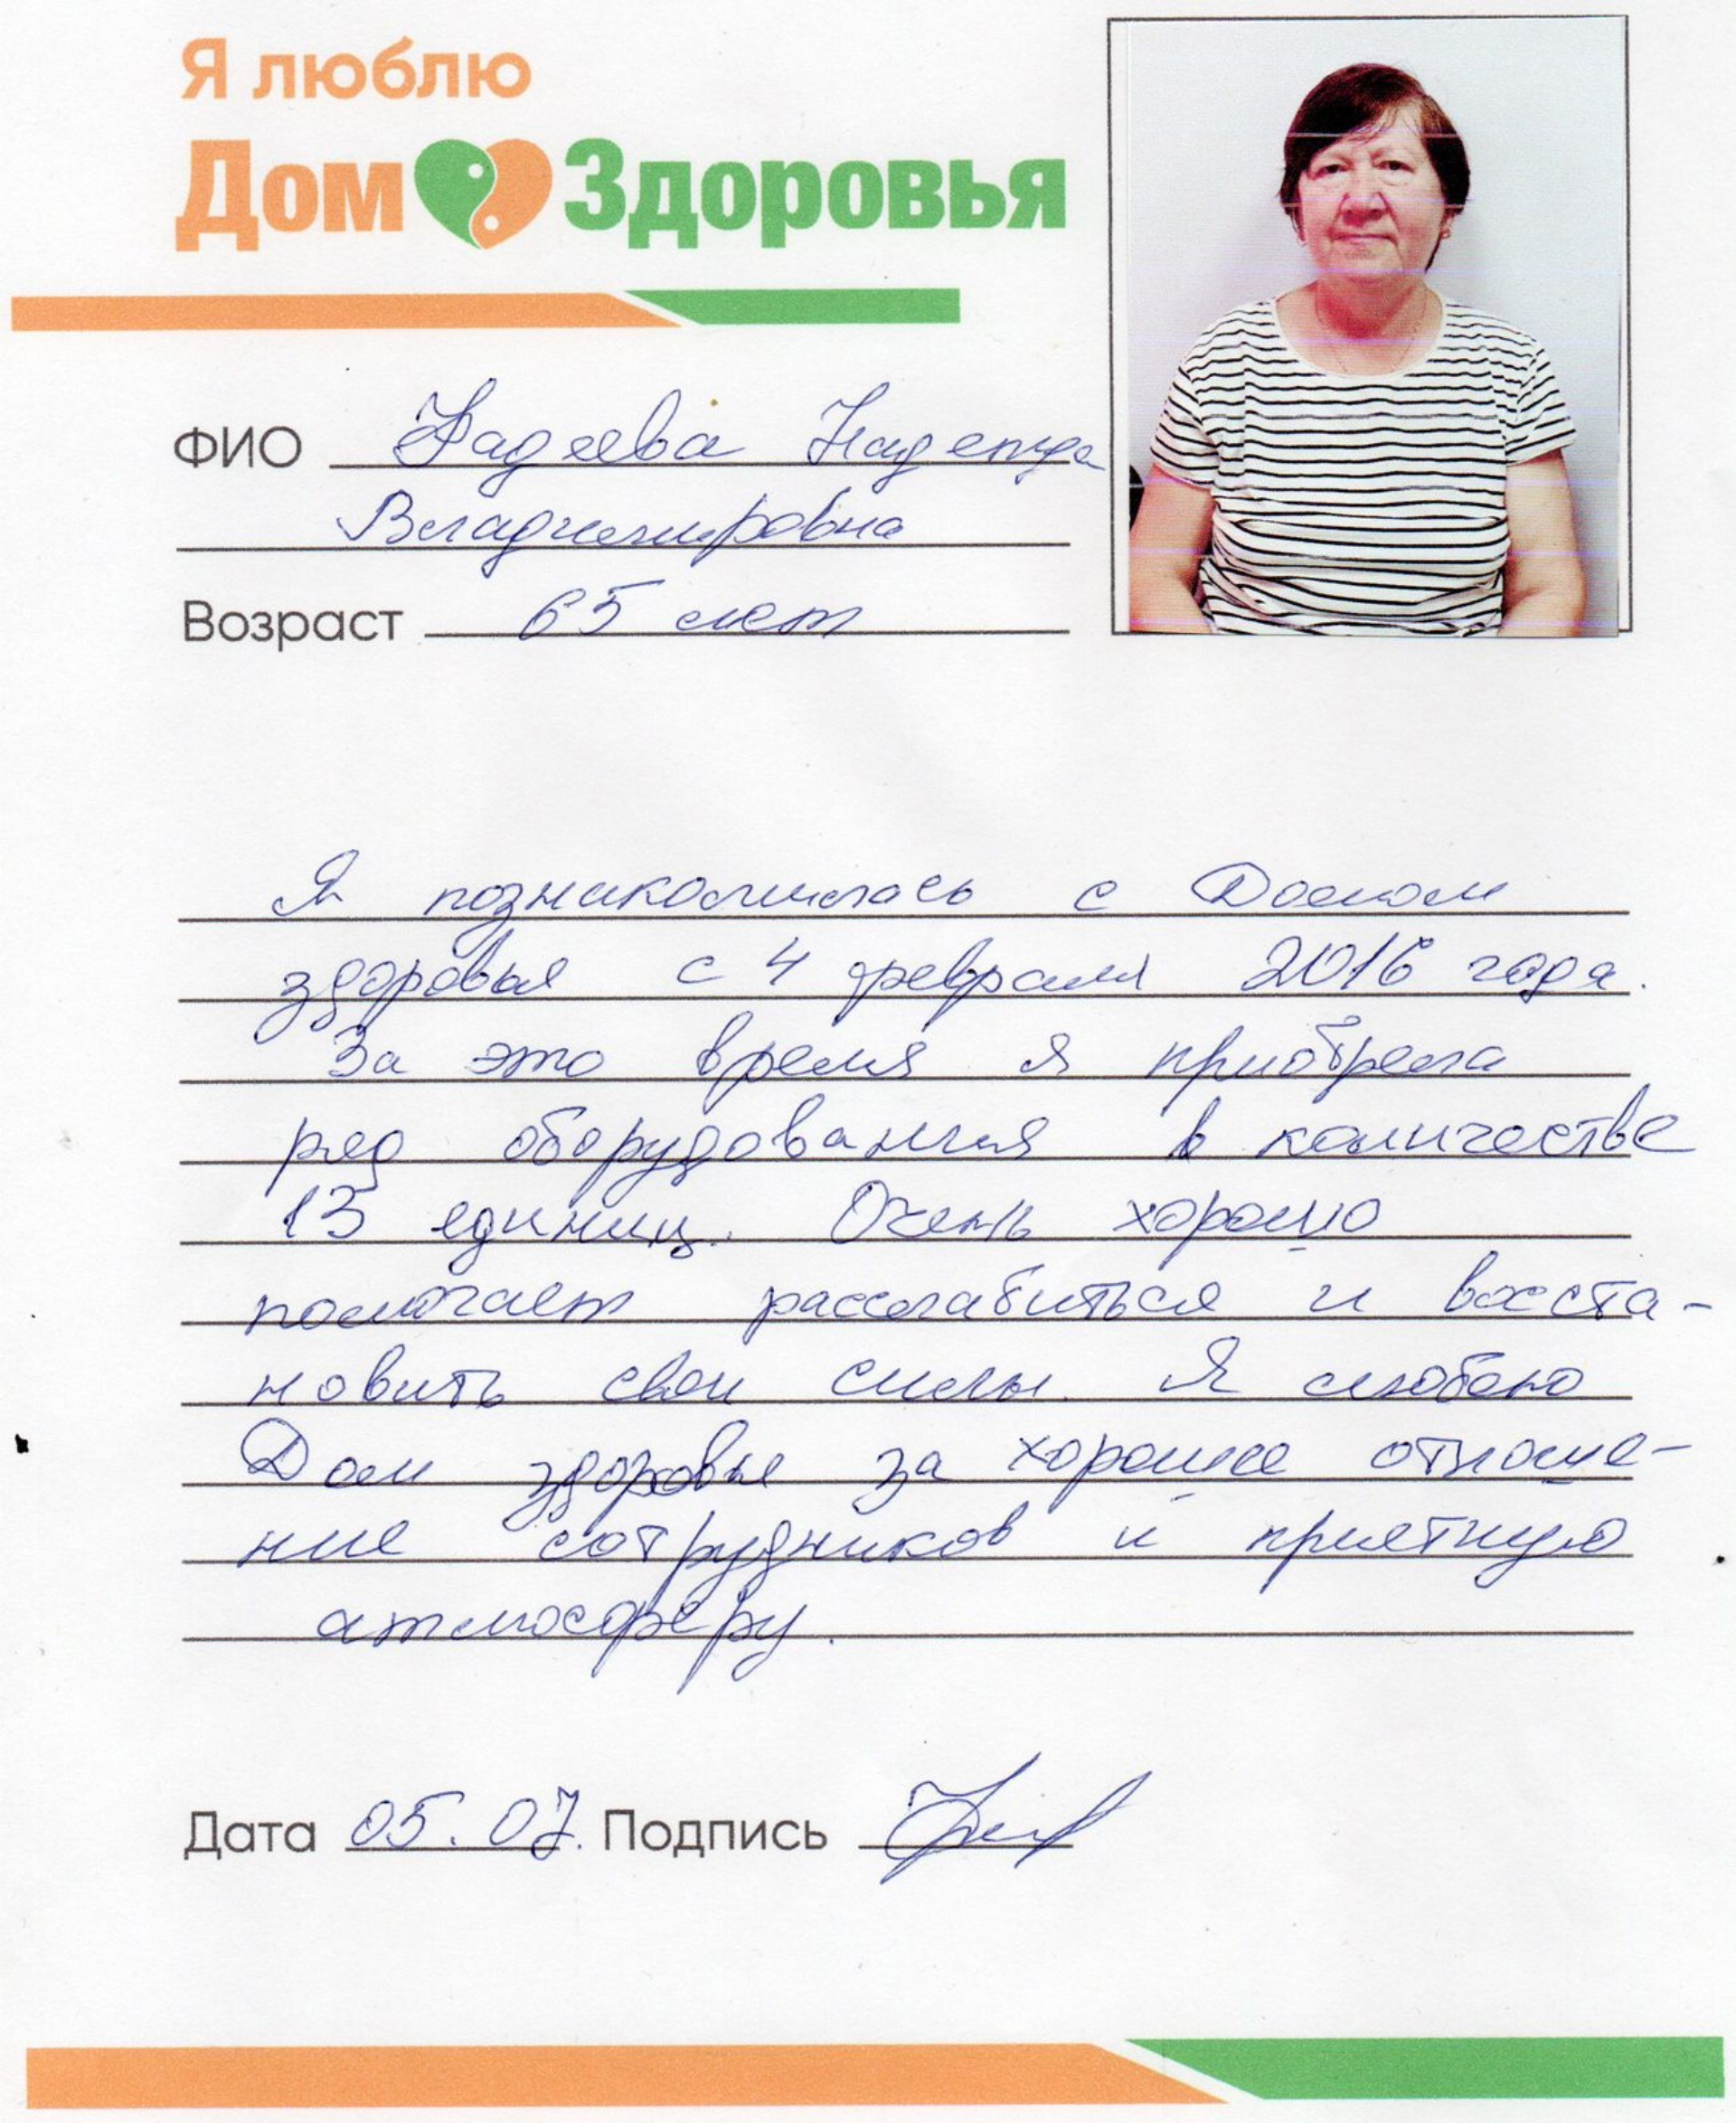 Я люблю
Дом Здоровья
ФИО Фадеева Надежда
Владимировна
Возраст 65 лет
Я познакомилась с Домом
здоровья с 4 февраля 2016 года.
За это время я приобрела
ряд оборудования в количестве
13 единиц. Очень хорошо
помогает расслабиться и восста-
новить свои силы. Я люблю
Дом здоровья за хорошее отноше-
ние сотрудников и приятную
атмосферу.
Дата 05.07. Подпись